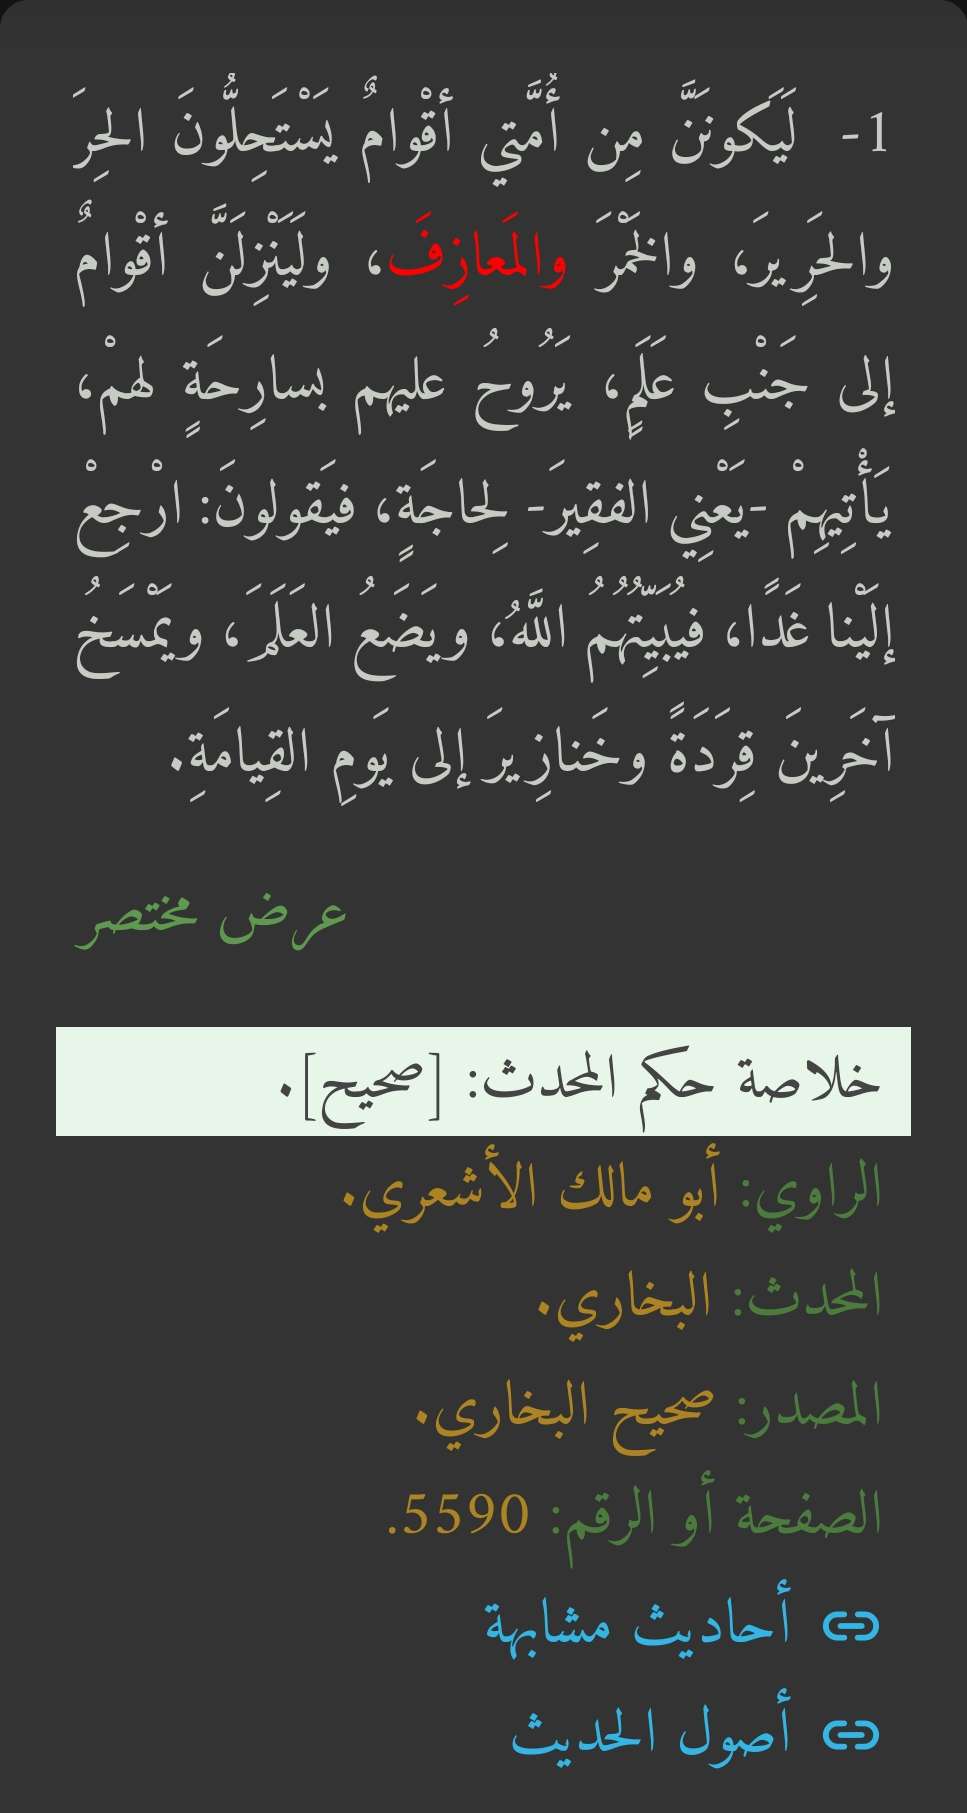 1- لَيَكونَنَّ مِن أُمَّتي أقْوامٌ يَسْتَحِلُّونَ الحِرَ
والحَرِيرَ، والخَمْرَ والمَعازِفَ، ولَيَنْزِلَنَّ أقْوامٌ
إلى جَنْبِ عَلَمٍ، يَرُوحُ عليهم بسارِحَةٍ لهمْ،
يَأْتِيهِمْ -يَعْنِي الفقِيرَ- لِحاجَةٍ، فيَقولونَ: ارْجِعْ
إلَيْنا غَدًا، فيُبَيِّتُهُمُ اللَّهُ، ويَضَعُ العَلَمَ، ويَمْسَخُ
آخَرِينَ قِرَدَةً وخَنازِيرَ إلى يَومِ القِيامَةِ.
عرض مختصر
خلاصة حكم المحدث: [صحيح].
الراوي: أبو مالك الأشعري.
المحدث: البخاري.
المصدر: صحيح البخاري.
الصفحة أو الرقم: 5590.
أحاديث مشابهة
أصول الحديث